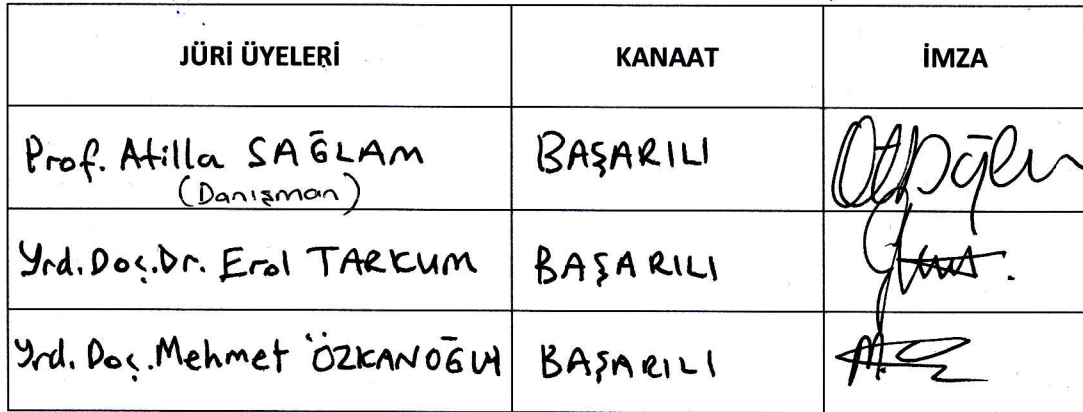 JÜRİ ÜYELERİ KANAAT İMZA
Prof. Atilla SAĞLAM BAŞARILI
(Danışman)
Yrd. Doç. Dr. Erol TARKUM BAŞARILI
Yrd. Doç. Mehmet ÖZKANOĞLU BAŞARILI